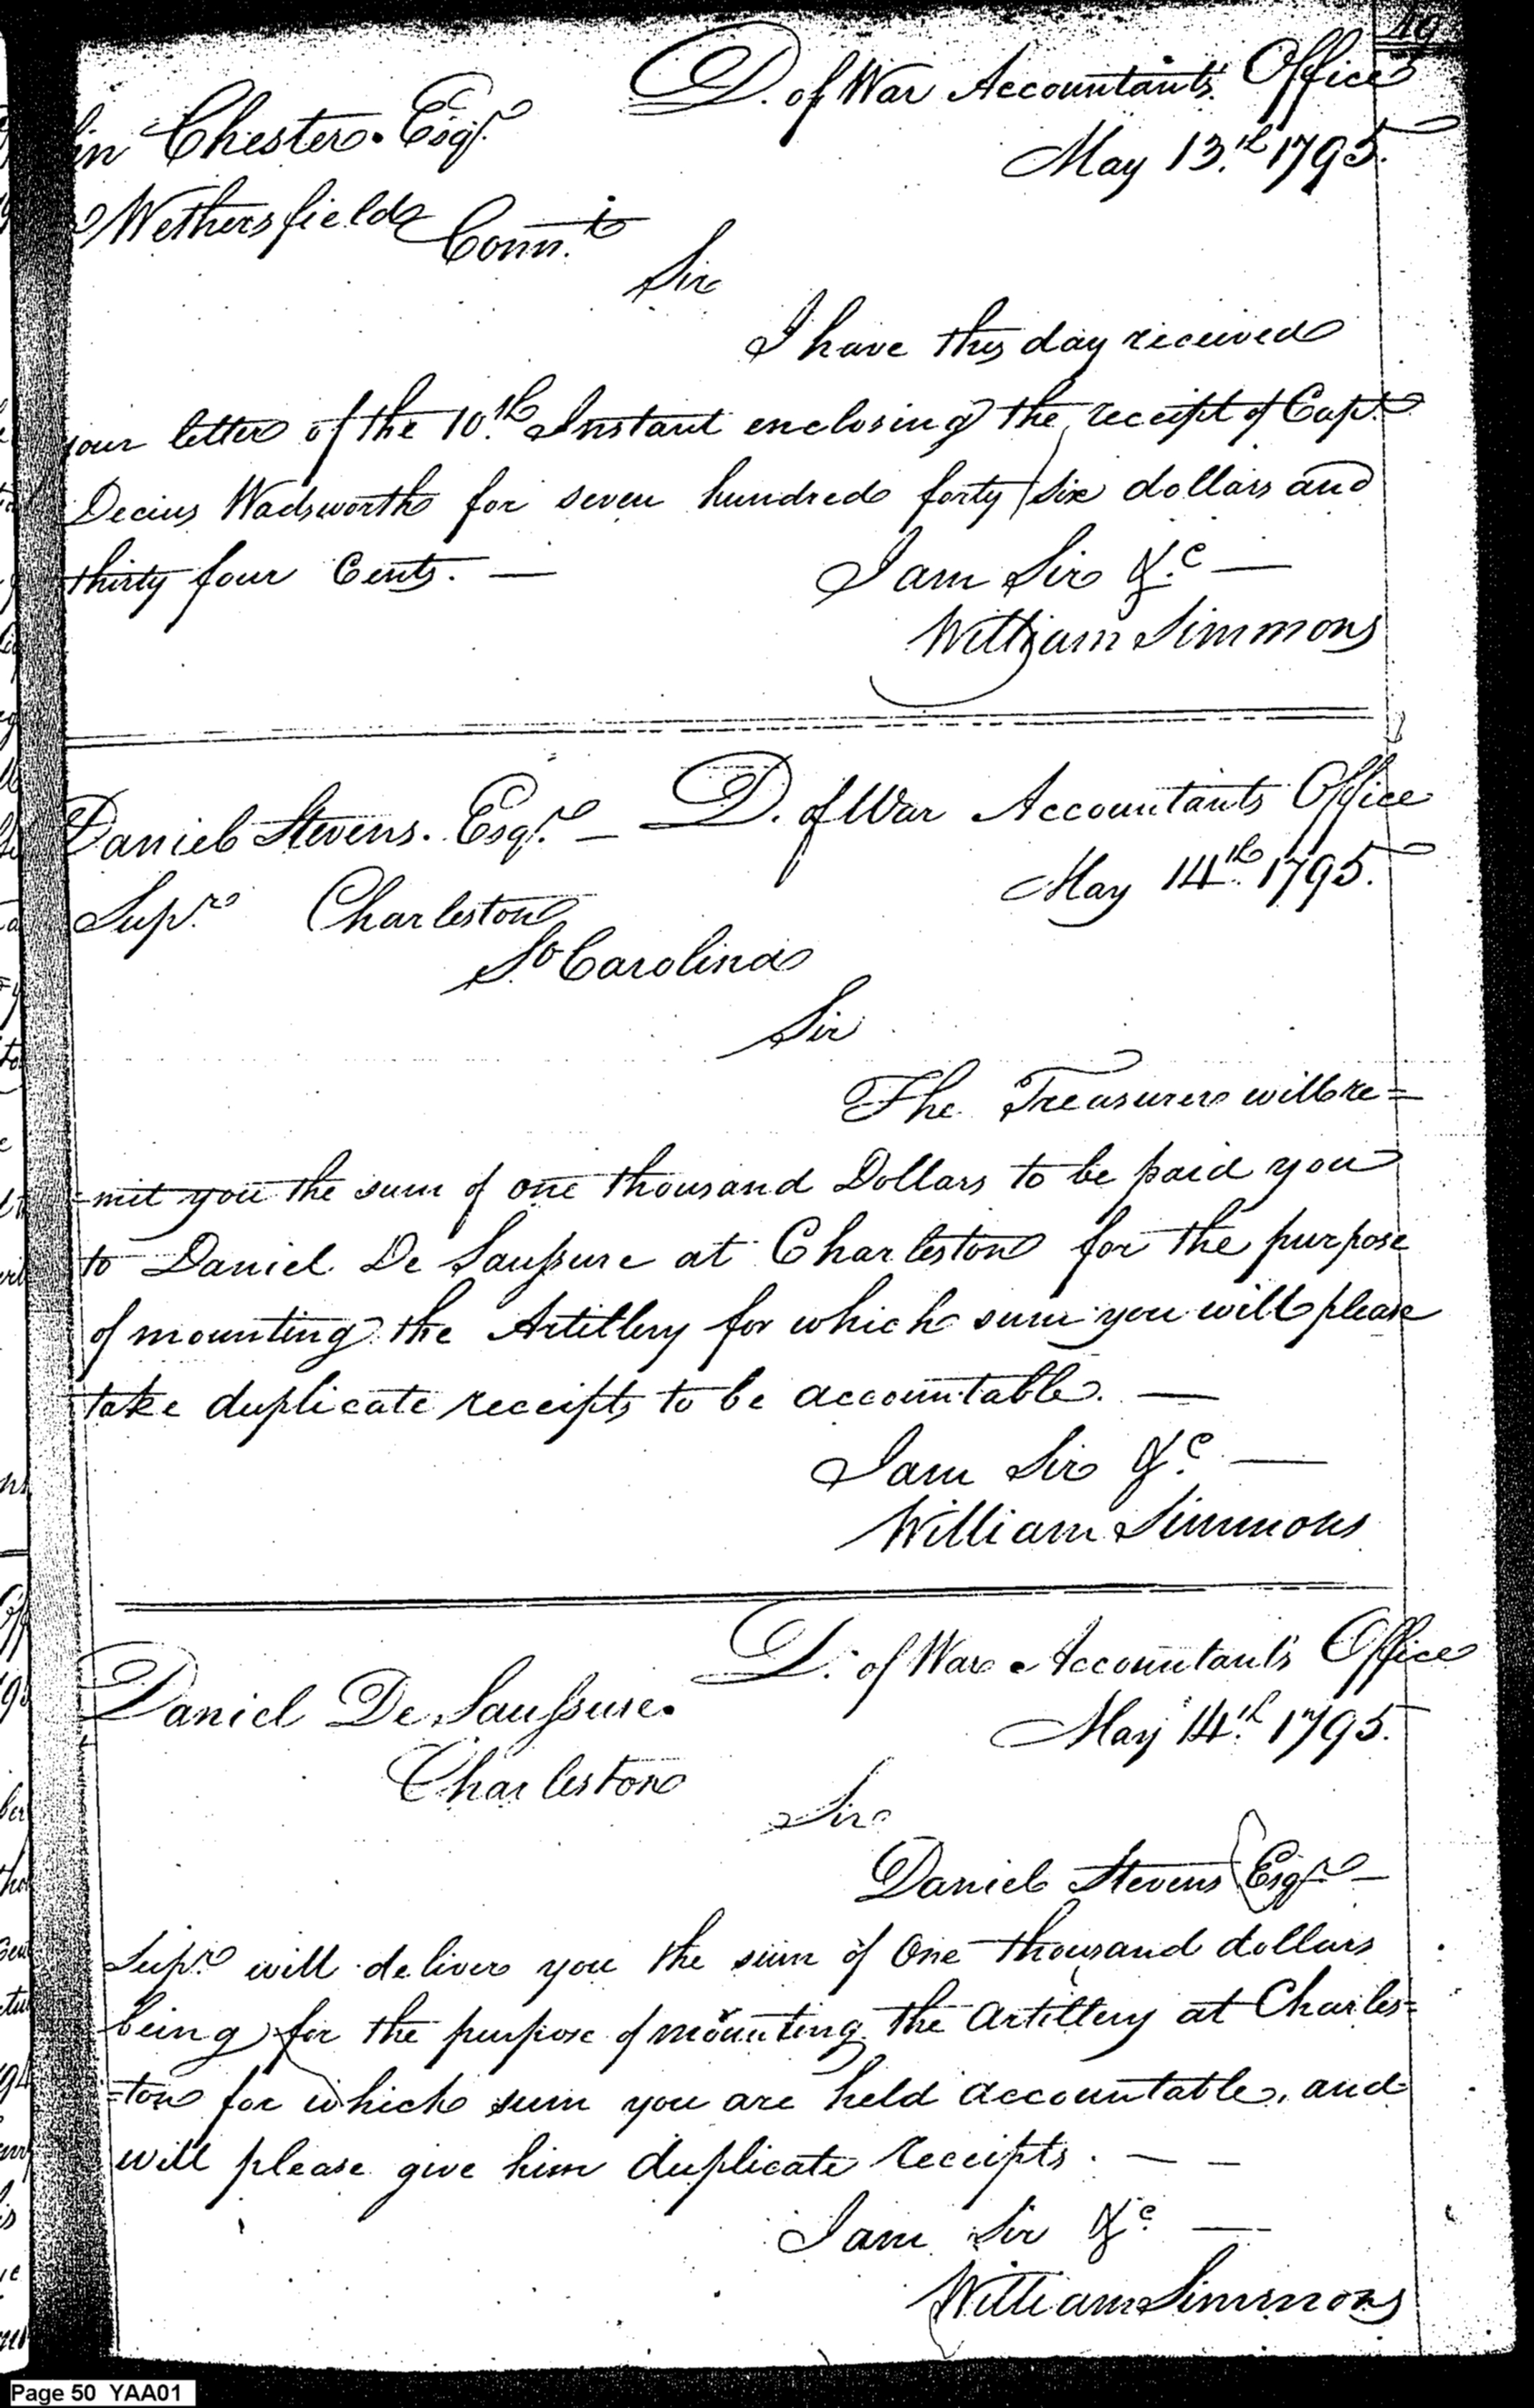 49
D. of War Accountants Office
May 13.th 1795.
in Chester. Esqr.
Wethersfield Conn.t
Sir
I have this day received
your letter of the 10.th Instant enclosing the receipt of Capt.
Decius Wadsworth for seven hundred forty six dollars and
thirty four Cents. —
I am Sir &.c —
William Simmons
Daniel Stevens. Esqr. — D. of War Accountants Office
May 14th. 1795.
Supr. Charleston
So. Carolina
Sir
The Treasurer will re=
=mit you the sum of one thousand Dollars to be paid you
to Daniel De Saussure at Charleston for the purpose
of mounting the Artillery for which sum you will please
take duplicate receipts to be accountable. —
I am Sir &.c —
William Simmons
D. of War Accountants Office
Daniel De Saussure.
May 14.th 1795.
Charleston
Sir
Daniel Stevens Esqr —
Supr. will deliver you the sum of One thousand dollars
being for the purpose of mounting the Artillery at Charles=
=ton for which sum you are held accountable, and
will please give him duplicate receipts. — —
I am Sir &.c —
William Simmons
Page 50 YAA01